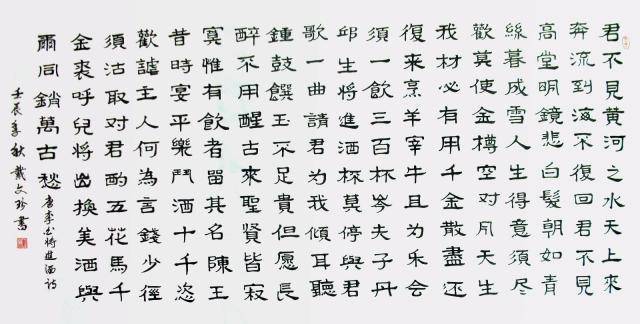 君不見黃河之水天上來
奔流到海不復回君不見
高堂明鏡悲白髮朝如青
絲暮成雪人生得意須尽
歡莫使金樽空对月天生
我材必有用千金散盡还
復來烹羊宰牛且為乐会
須一飲三百杯岑夫子丹
邱生将進酒杯莫停與君
歌一曲請君为我傾耳聽
鍾鼓饌玉不足貴但愿長
醉不用醒古來聖賢皆寂
寞惟有飲者留其名陳王
昔時宴平樂鬥酒十千恣
歡謔主人何為言錢少徑
須沽取对君酌五花馬千
金裘呼兒将出換美酒與
爾同銷萬古愁 唐李白将進酒詩
壬辰季秋戴文珍書